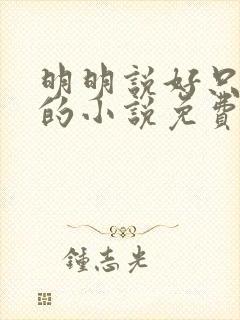 明明説好只
的小説免費
鍾志光